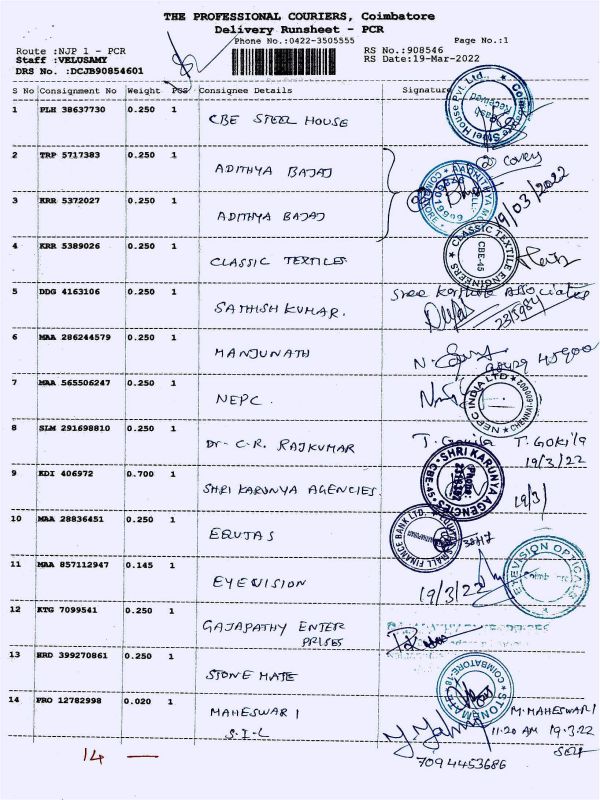 THE PROFESSIONAL COURIERS, Coimbatore
Delivery Runsheet - PCR
Phone No.:0422-3505555
Page No.:1
Route :NJP 1 - PCR
RS No.:908546
Staff :VELUSAMY
RS Date:19-Mar-2022
DRS No. :DCJB90854601
S No Consignment No Weight PCS Consignee Details Signature
1 PLH 38637730 0.250 1 CBE STEEL HOUSE
2 TRP 5717383 0.250 1 ADITHYA BAJAJ
3 KRR 5372027 0.250 1 ADITHYA BAJAJ
19/03/2022
4 KRR 5389026 0.250 1 CLASSIC TEXTILES
CLASSIC TEXTILE ENGINEERS
CBE-45
5 DDG 4163106 0.250 1 SATHISH KUMAR.
Associates
6 MAA 286244579 0.250 1 MANJUNATH
7 MAA 565506247 0.250 1 NEPC.
NEPC INDIA LTD
8 SLM 291698810 0.250 1 Dr- C.R. RAJKUMAR
T. GOKILA
19/3/22
9 KDI 406972 0.700 1 SHRI KARUNYA AGENCIES.
SHRI KARUNYA AGENCIES
CBE-45
19/3/
10 MAA 28836451 0.250 1 EQUTAS
SMALL FINANCE BANK LTD.
11 MAA 857112947 0.145 1 EYEVISION
19/3/22
EYEVISION OPTICALS
12 KTG 7099541 0.250 1 GAJAPATHY ENTER
PRISES
13 HRD 399270861 0.250 1 STONE MATE
STONEMATE
COIMBATORE-18
14 PRO 12782998 0.020 1 MAHESWARI
S.I.L
M.MAHESWARI
11:20 AM 19.3.22
SELF
7094453686
14 —